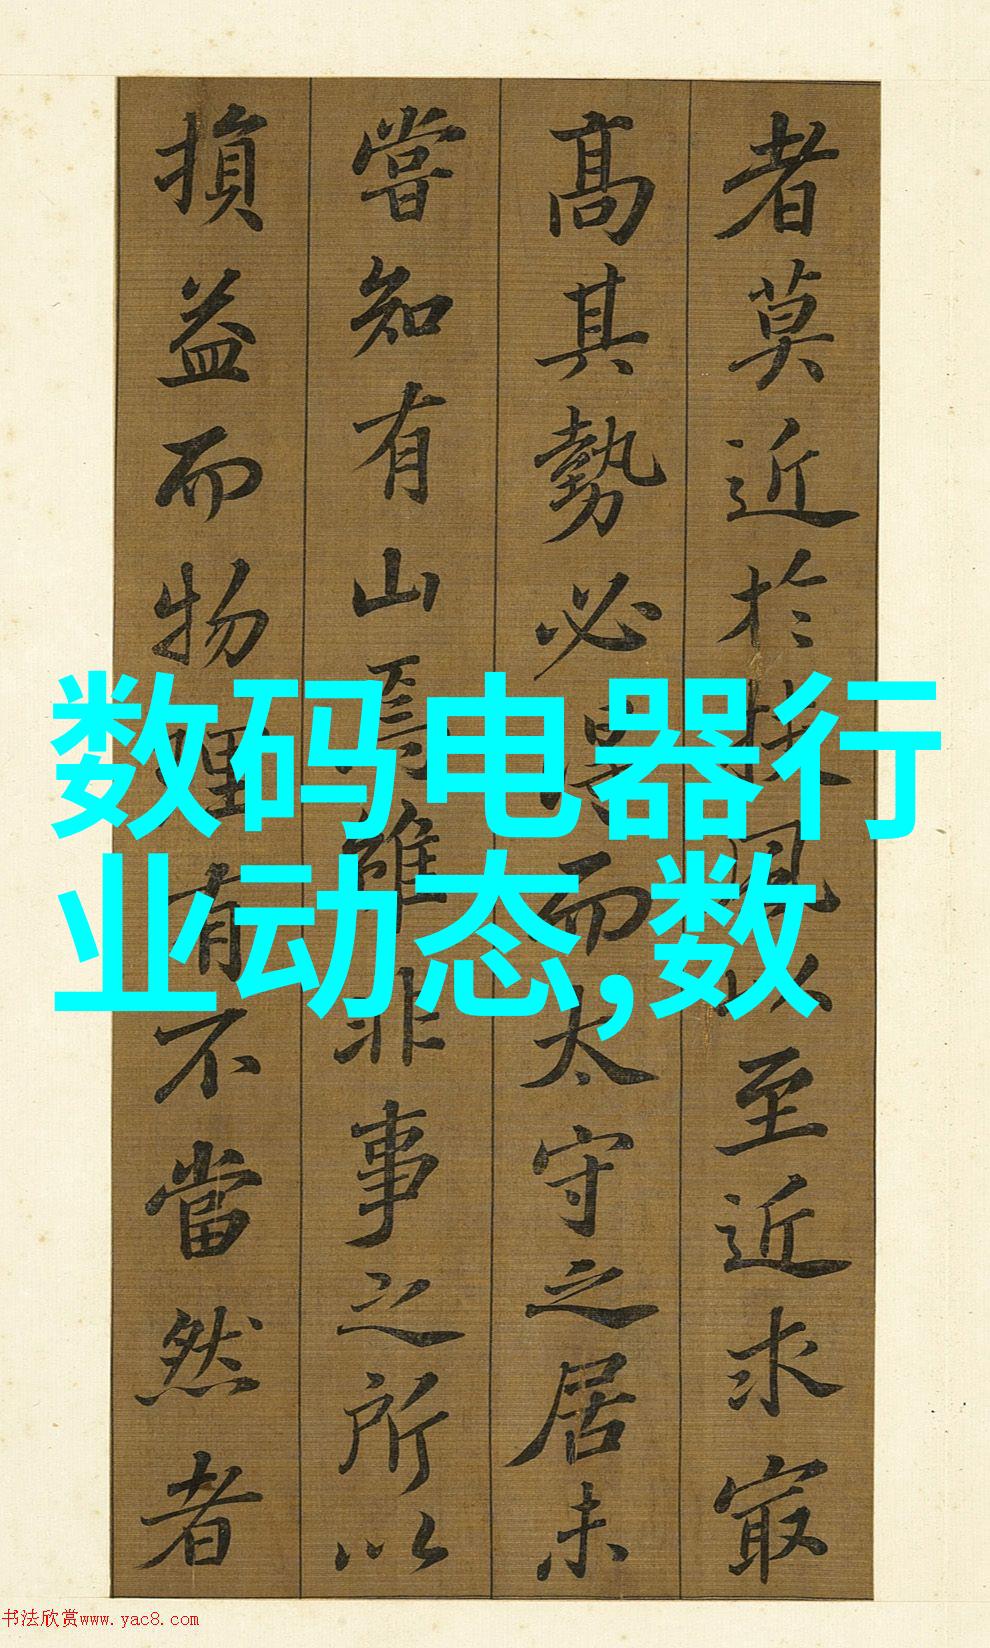 者莫近於扶風以至近求冣
高其勢必得而太守之居未
嘗知有山焉雖非事之所以
損益而物理有不當然者
数码电器行
业动态,数
书法欣赏www.yac8.com